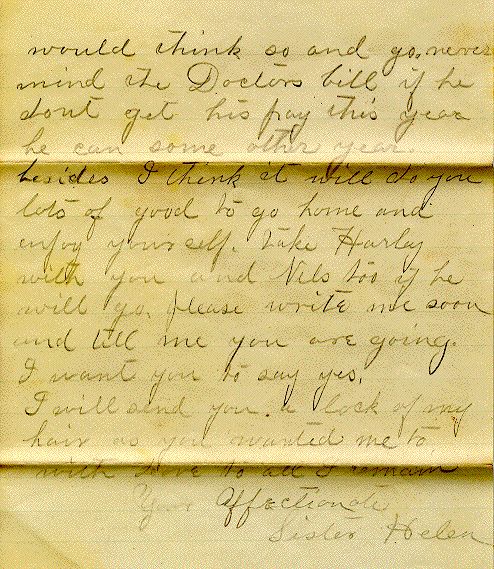 would think so and go, never
mind the Doctors bill if he
dont get his pay this year
he can some other year.
besides I think it will do you
lots of good to go home and
enjoy yourself. take Harley
with you and Nels too if he
will go, please write me soon
and tell me you are going.
I want you to say yes,
I will send you a lock of my
hair as you wanted me to,
with Love to all I remain
Your Affectionate
Sister Helen